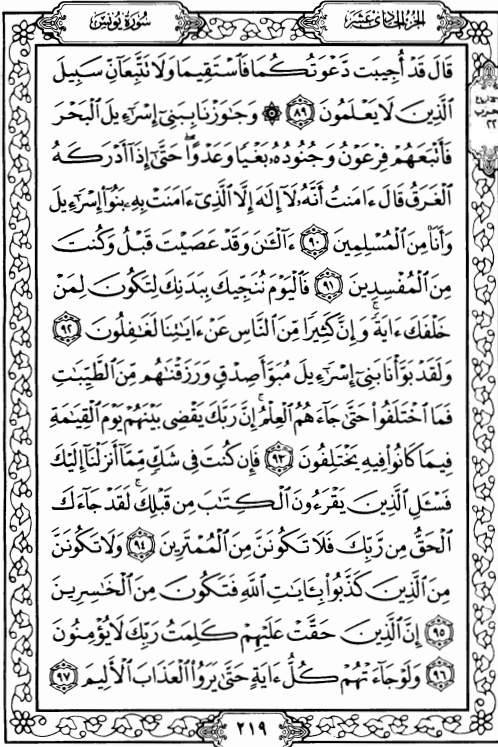 سُورَةُ يُونُسَ
الجزء الحادي عشر
قَالَ قَدْ أُجِيبَت دَّعْوَتُكُمَا فَٱسْتَقِيمَا وَلَا تَتَّبِعَآنِّ سَبِيلَ
ٱلَّذِينَ لَا يَعْلَمُونَ ٨٩ ۞ وَجَٰوَزْنَا بِبَنِىٓ إِسْرَٰٓءِيلَ ٱلْبَحْرَ
فَأَتْبَعَهُمْ فِرْعَوْنُ وَجُنُودُهُۥ بَغْيًا وَعَدْوًا ۖ حَتَّىٰٓ إِذَآ أَدْرَكَهُ
ٱلْغَرَقُ قَالَ ءَامَنتُ أَنَّهُۥ لَآ إِلَٰهَ إِلَّا ٱلَّذِىٓ ءَامَنَتْ بِهِۦ بَنُوٓا۟ إِسْرَٰٓءِيلَ
وَأَنَا۠ مِنَ ٱلْمُسْلِمِينَ ٩٠ ءَآلْـَٰٔنَ وَقَدْ عَصَيْتَ قَبْلُ وَكُنتَ
مِنَ ٱلْمُفْسِدِينَ ٩١ فَٱلْيَوْمَ نُنَجِّيكَ بِبَدَنِكَ لِتَكُونَ لِمَنْ
خَلْفَكَ ءَايَةً ۚ وَإِنَّ كَثِيرًا مِّنَ ٱلنَّاسِ عَنْ ءَايَٰتِنَا لَغَٰفِلُونَ ٩٢
وَلَقَدْ بَوَّأْنَا بَنِىٓ إِسْرَٰٓءِيلَ مُبَوَّأَ صِدْقٍ وَرَزَقْنَٰهُم مِّنَ ٱلطَّيِّبَٰتِ
فَمَا ٱخْتَلَفُوا۟ حَتَّىٰ جَآءَهُمُ ٱلْعِلْمُ ۚ إِنَّ رَبَّكَ يَقْضِى بَيْنَهُمْ يَوْمَ ٱلْقِيَٰمَةِ
فِيمَا كَانُوا۟ فِيهِ يَخْتَلِفُونَ ٩٣ فَإِن كُنتَ فِى شَكٍّ مِّمَّآ أَنزَلْنَآ إِلَيْكَ
فَسْـَٔلِ ٱلَّذِينَ يَقْرَءُونَ ٱلْكِتَٰبَ مِن قَبْلِكَ ۚ لَقَدْ جَآءَكَ
ٱلْحَقُّ مِن رَّبِّكَ فَلَا تَكُونَنَّ مِنَ ٱلْمُمْتَرِينَ ٩٤ وَلَا تَكُونَنَّ
مِنَ ٱلَّذِينَ كَذَّبُوا۟ بِـَٔايَٰتِ ٱللَّهِ فَتَكُونَ مِنَ ٱلْخَٰسِرِينَ
٩٥ إِنَّ ٱلَّذِينَ حَقَّتْ عَلَيْهِمْ كَلِمَتُ رَبِّكَ لَا يُؤْمِنُونَ
٩٦ وَلَوْ جَآءَتْهُمْ كُلُّ ءَايَةٍ حَتَّىٰ يَرَوُا۟ ٱلْعَذَابَ ٱلْأَلِيمَ ٩٧
٢١٩